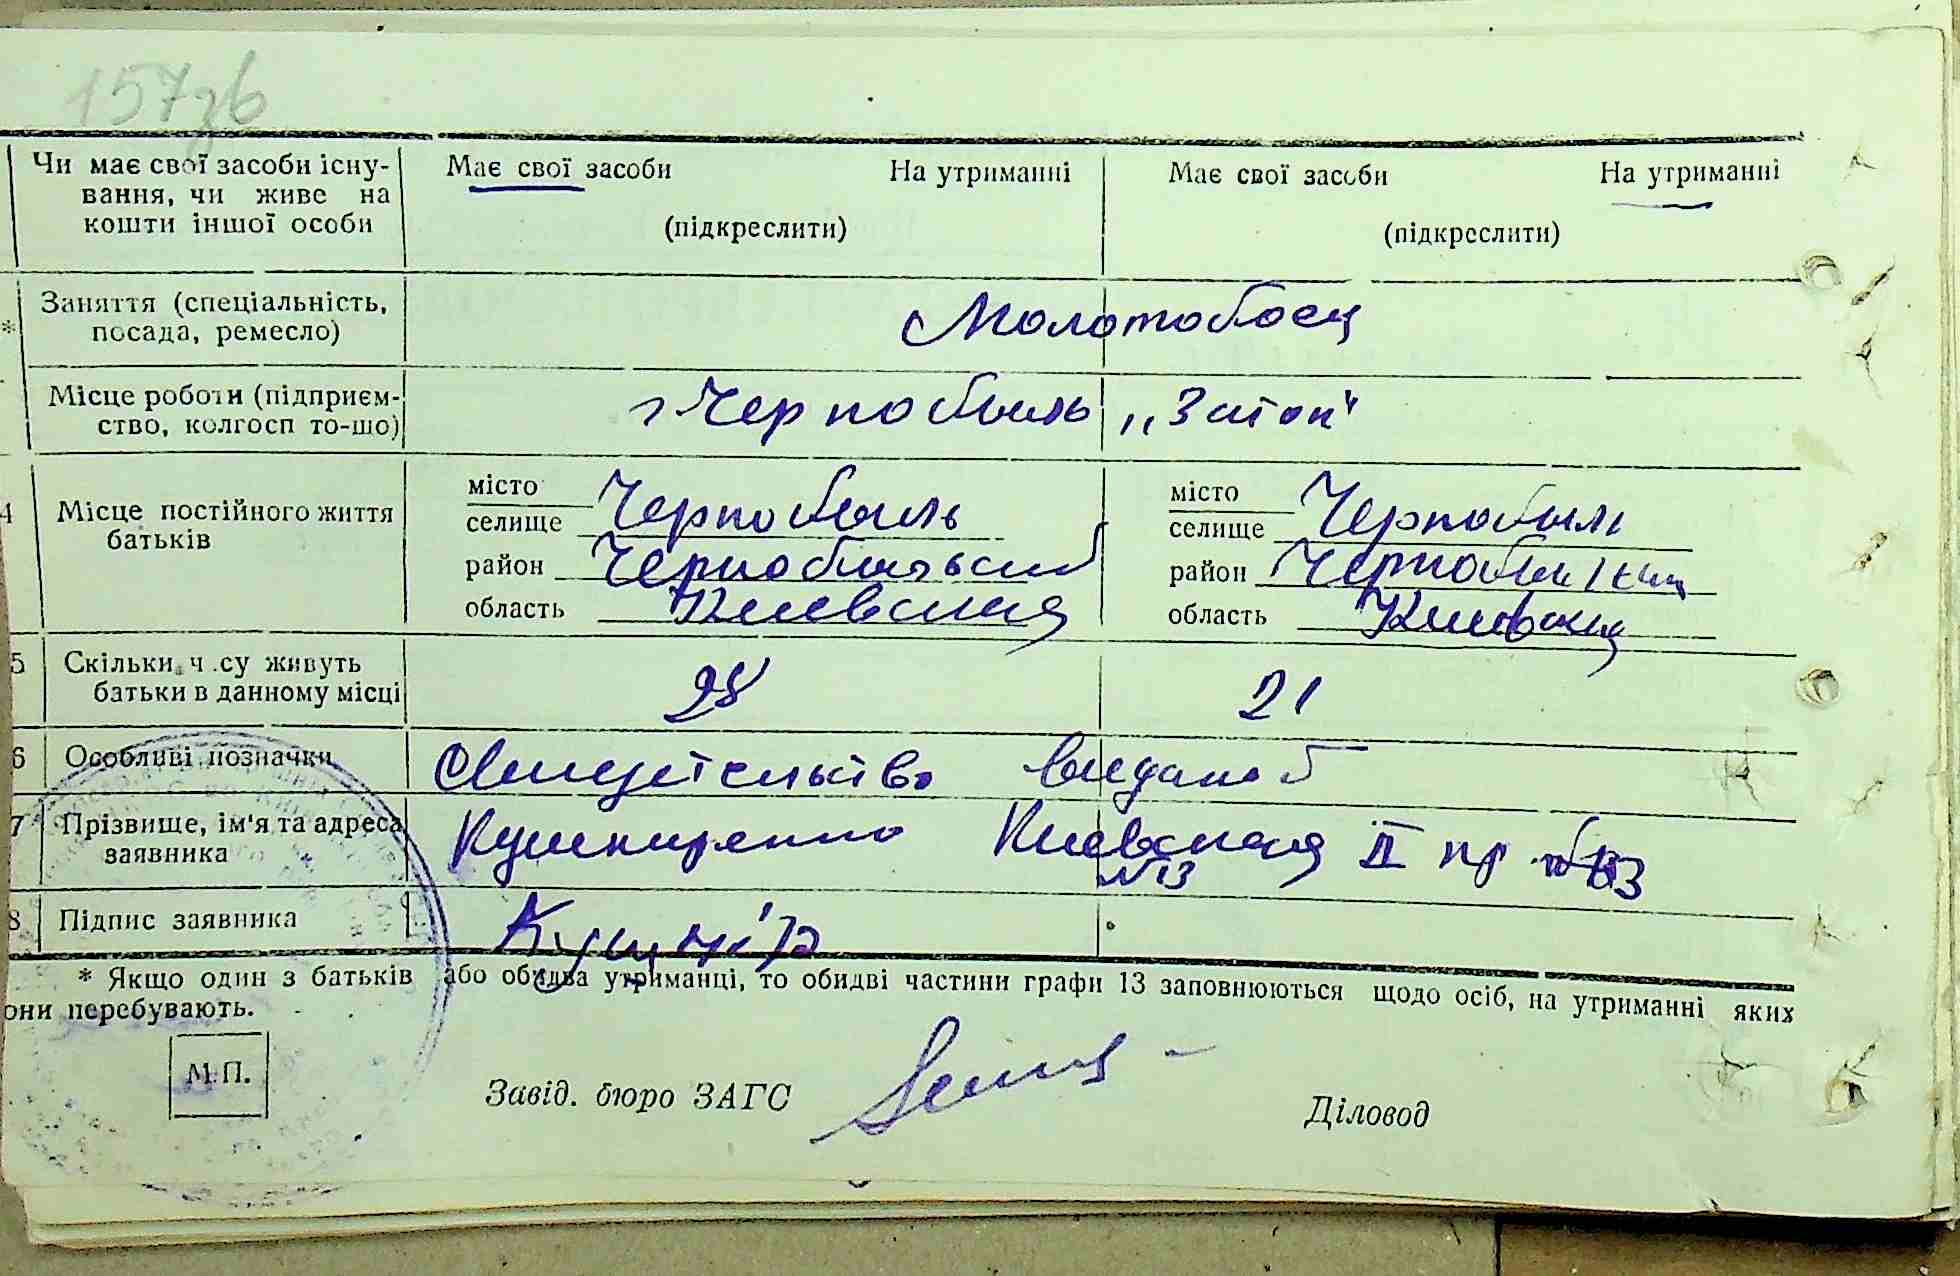 157зв
Чи має свої засоби існу-
вання, чи живе на
кошти іншої особи
Має свої засоби На утриманні
(підкреслити)
Має свої засоби На утриманні
(підкреслити)
* Заняття (спеціальність,
посада, ремесло)
Молотобоец
Місце роботи (підприєм-
ство, колгосп то-що)
г Чернобыль „Затон"
4 Місце постійного життя
батьків
місто
селище Чернобыль
район Чернобыльский
область Киевская
місто
селище Чернобыль
район Чернобыльский
область Киевская
5 Скільки ч су живуть
батьки в данному місці
28 21
6 Особливі позначки
Свидетельство
7 Прізвище, ім'я та адреса
заявника
Киевская II пр
№13
8 Підпис заявника
* Якщо один з батьків або обидва утриманці, то обидві частини графи 13 заповнюються щодо осіб, на утриманні яких
они перебувають.
М.П.
Завід. бюро ЗАГС
Діловод